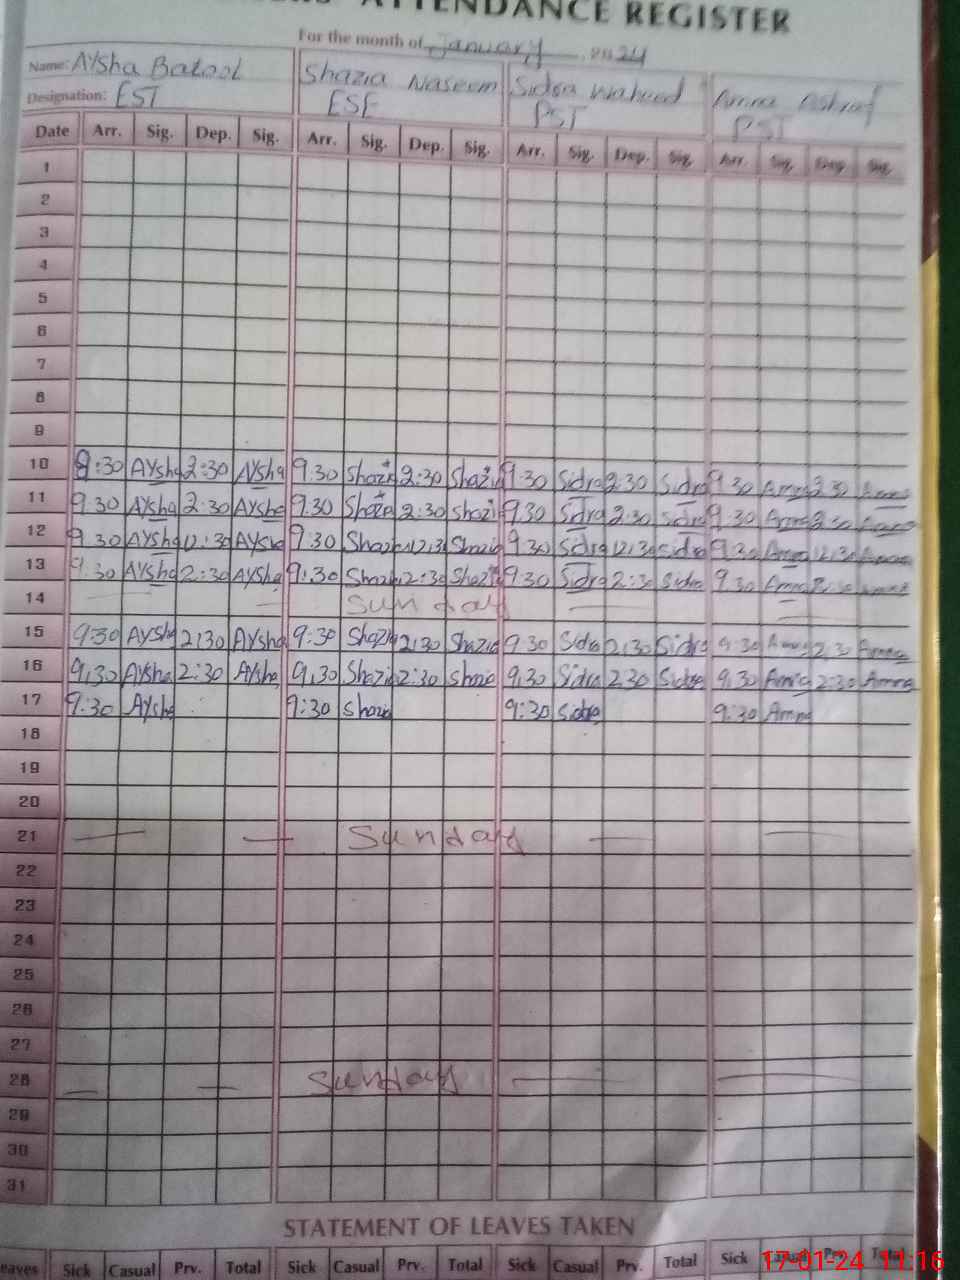 ATTENDANCE REGISTER
For the month of January 2024
Name: AYsha Batool Shazia Naseem Sidra Waheed Amna Ashraf
Designation: EST ESE PST PST
Date Arr. Sig. Dep. Sig. Arr. Sig. Dep. Sig. Arr. Sig. Dep. Sig. Arr. Sig. Dep. Sig.
1
2
3
4
5
6
7
8
9
10 9:30 AYsha 2:30 AYsha 9.30 Shazia 2:30 Shazia 9.30 Sidra 2.30 Sidra 9.30 Amna 2.30
11 9.30 AYsha 2:30 AYsha 9.30 Shazia 2:30 Shazia 9.30 Sidra 2:30 Sidra 9.30 Amna 2.30
12 9.30 AYsha 12:30 AYsha 9:30 Shazia 12:30 Shazia 9.30 Sidra 12:30 Sidra 9:30 Amna 12:30
13 9.30 AYsha 2:30 AYsha 9:30 Shazia 2:30 Shazia 9:30 Sidra 2:30 Sidra 9.30 Amna
14 Sunday
15 9:30 AYsha 2:30 AYsha 9:30 Shazia 2:30 Shazia 9.30 Sidra 2:30 Sidra 9:30 Amna 2:30 Amna
16 9:30 AYsha 2:30 AYsha 9:30 Shazia 2:30 Shazia 9:30 Sidra 2:30 Sidra 9.30 Amna 2:30 Amna
17 9:30 AYsha 9:30 Shazia 9:30 Sidra 9:30 Amna
18
19
20
21 Sunday
22
23
24
25
26
27
28 Sunday
29
30
31
STATEMENT OF LEAVES TAKEN
Sick Casual Prv. Total Sick Casual Prv. Total Sick Casual Prv. Total Sick Casual Prv. Total
17-01-24 11:16